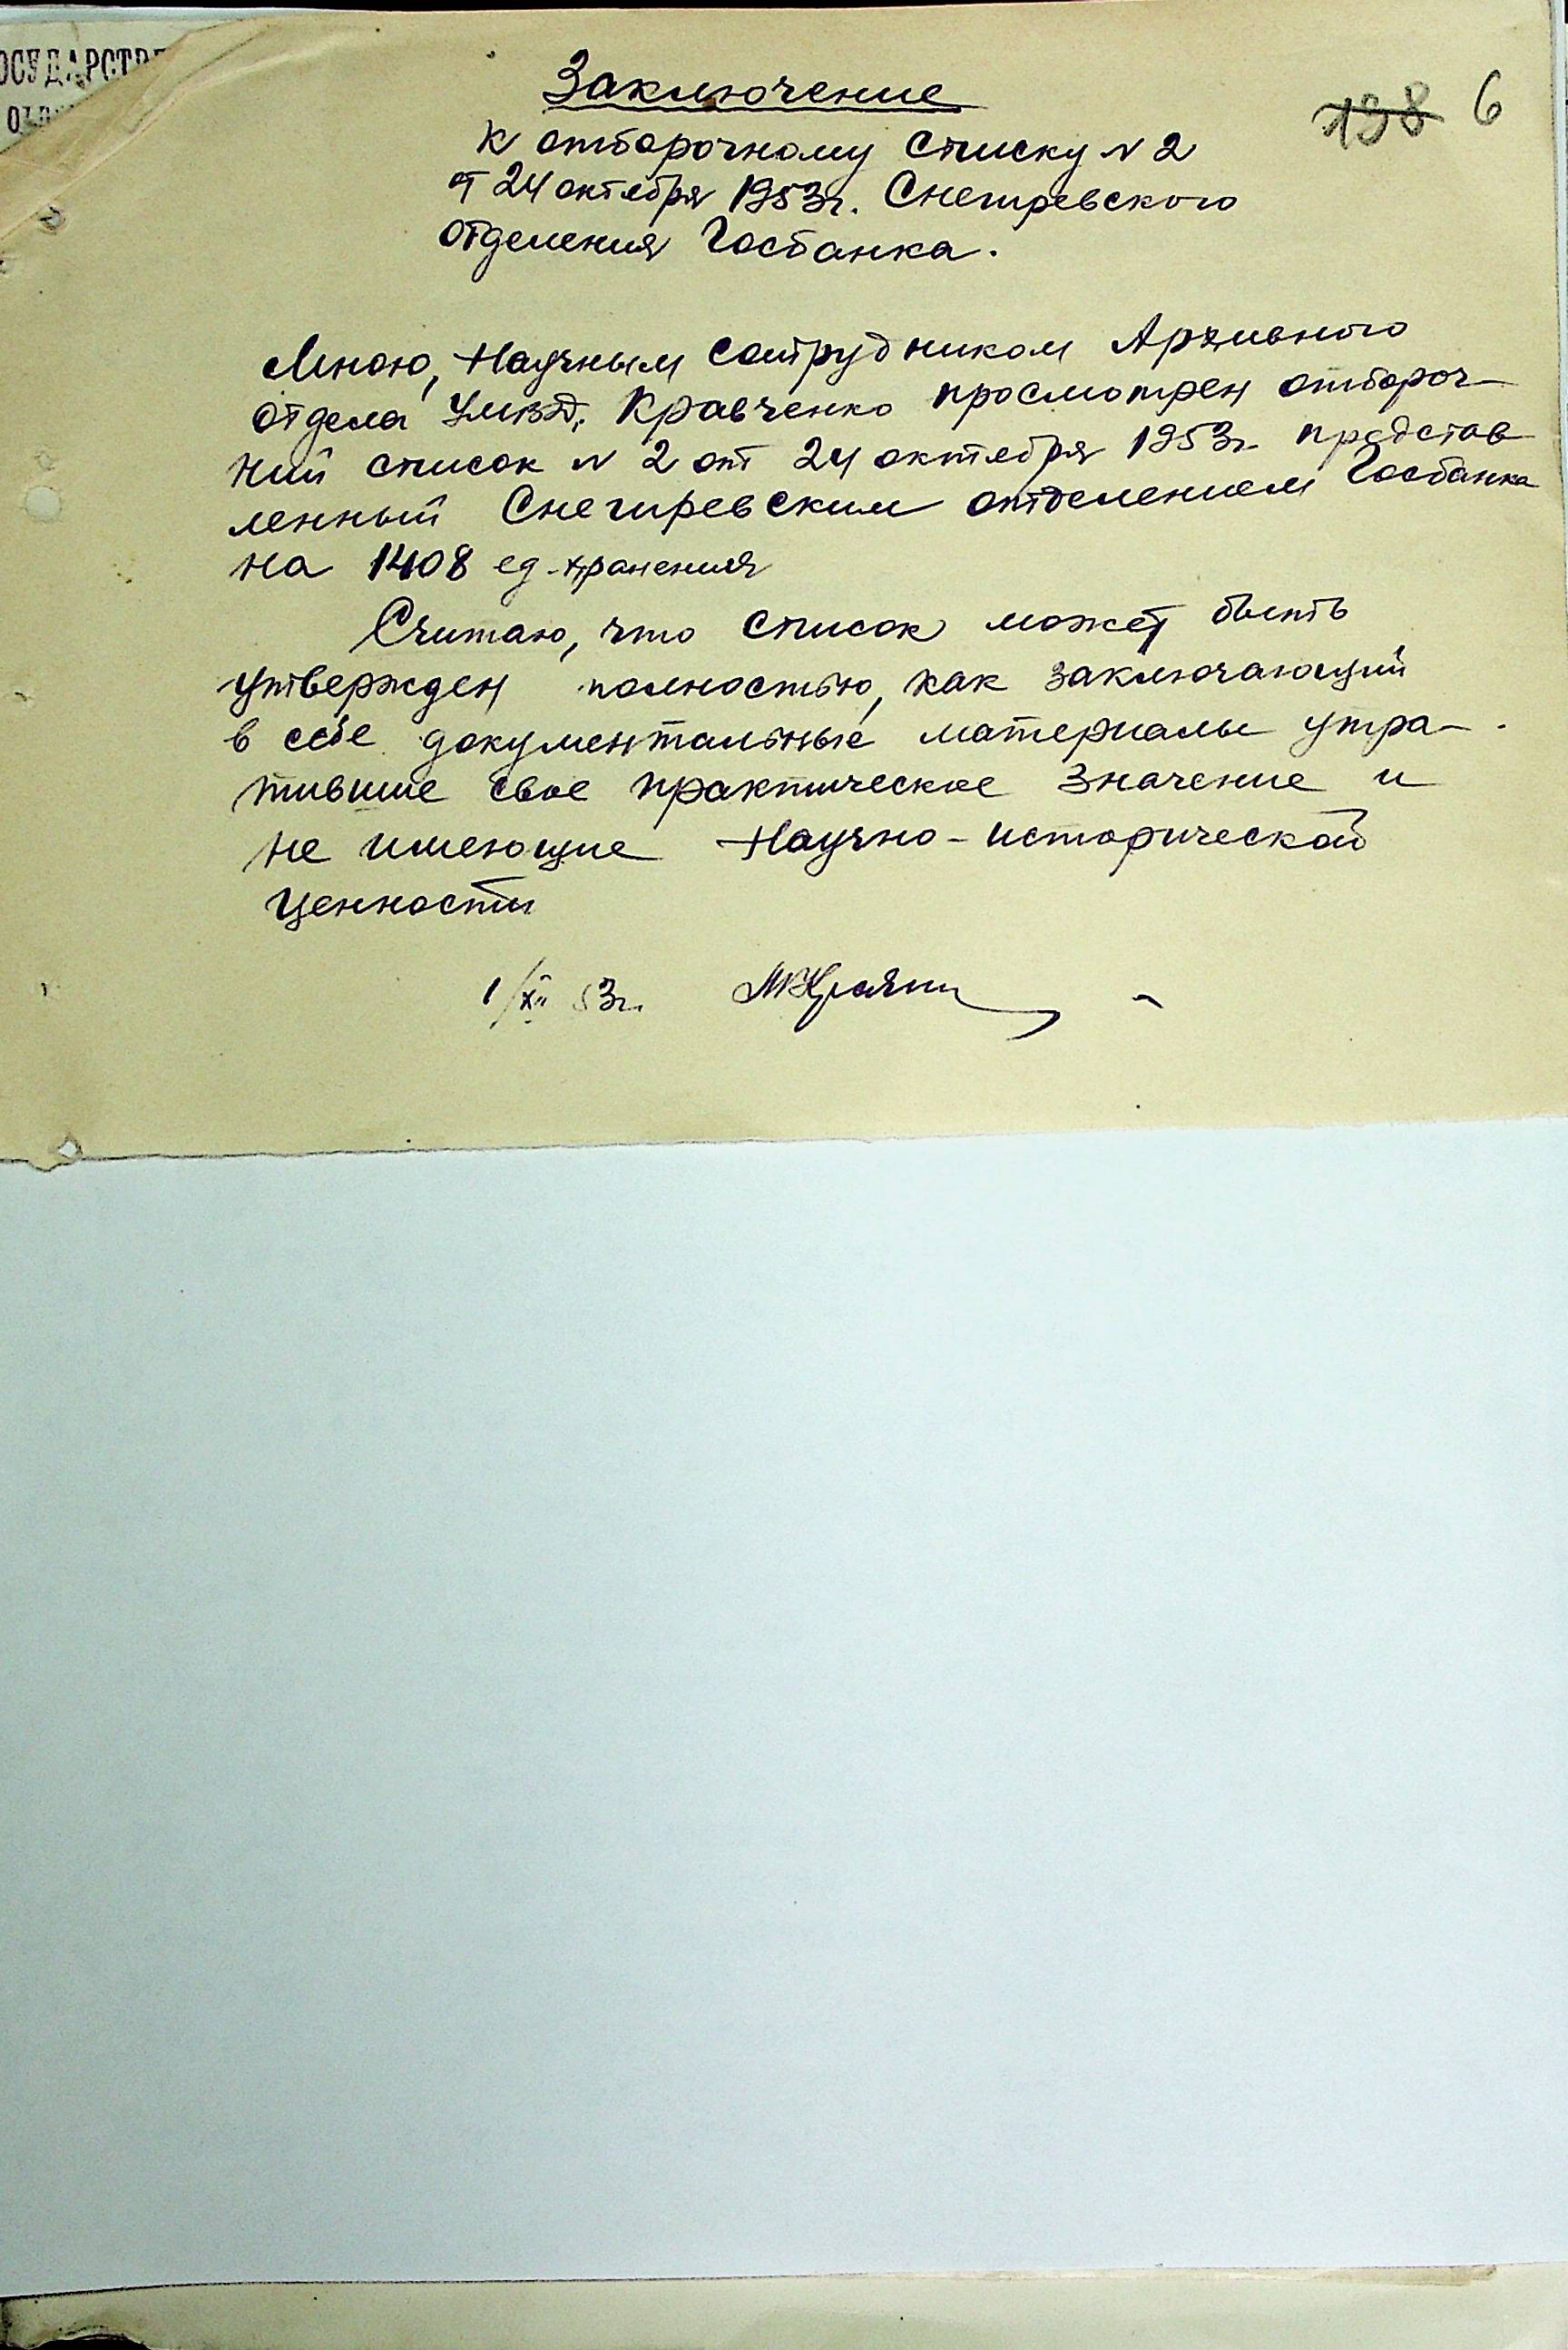 138 6
Заключение
к отборочному списку N 2
от 24 октября 1953г. Снегиревского
отделения Госбанка.
Мною, Научным сотрудником Архивного
отдела УМВД, Кравченко просмотрен отбороч-
ний список N 2 от 24 октября 1953г. представ
ленный Снегиревским отделением Госбанка
на 1408 ед. хранения
Считаю, что список может быть
утвержден полностью, как заключающий
в себе документальные материалы утра-
тившие свое практическое значение и
не имеющие Научно-исторической
ценности
1/XII 53г.